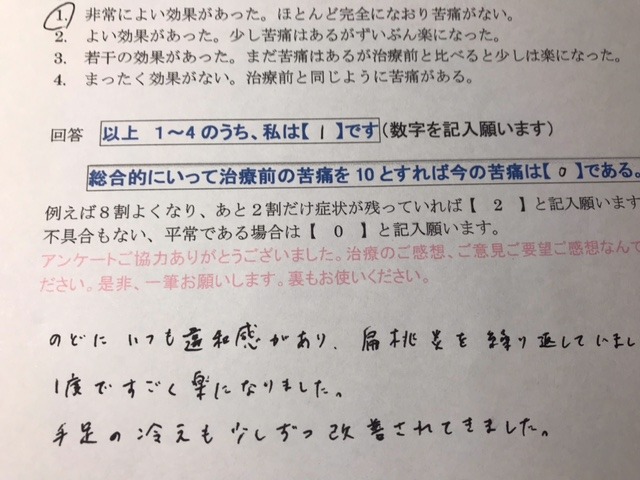 1. 非常によい効果があった。ほとんど完全になおり苦痛がない。
2. よい効果があった。少し苦痛はあるがずいぶん楽になった。
3. 若干の効果があった。まだ苦痛はあるが治療前と比べると少しは楽になった。
4. まったく効果がない。治療前と同じように苦痛がある。
回答 以上 1～4のうち、私は【 1 】です(数字を記入願います)
総合的にいって治療前の苦痛を10とすれば今の苦痛は【 0 】である。
例えば８割よくなり、あと２割だけ症状が残っていれば【 2 】と記入願います
不具合もない、平常である場合は【 0 】と記入願います。
アンケートご協力ありがとうございました。治療のご感想、ご意見ご要望ご感想なんで
ださい。是非、一筆お願いします。裏もお使いください。
のどに いつも違和感があり、扁桃炎を繰り返していまし
1度ですごく楽になりました。
手足の冷えも少しずつ改善されてきました。